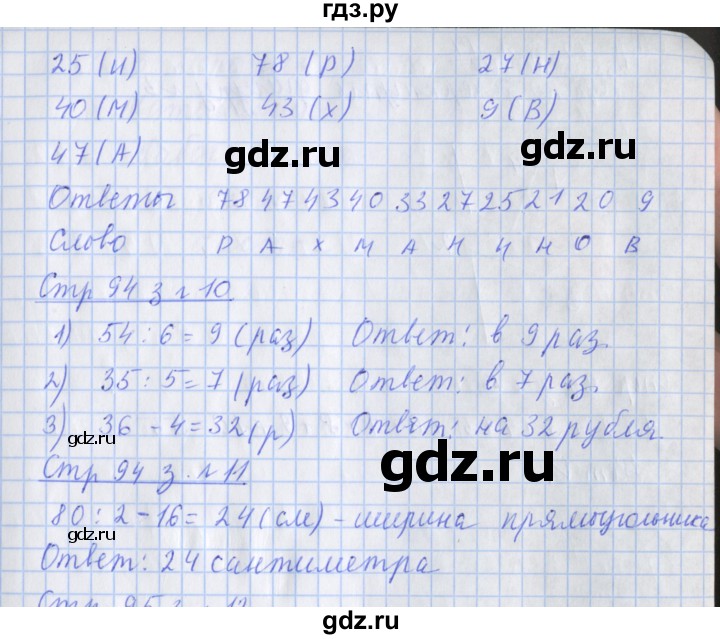 гдз.ру
25 (И) 78 (Р) 27 (Н)
40 (М) 43 (Х) 9 (В)
47 (А)
gdz.ru gdz.ru
Ответы 78 47 43 40 33 27 25 21 20 9
Слово Р А Х М А Н И Н О В
Стр 94 з №10
1) 54 : 6 = 9 (раз) Ответ: в 9 раз.
2) 35 : 5 = 7 (раз) Ответ: в 7 раз.
3) 36 - 4 = 32 (р) Ответ: на 32 рубля.
gdz.ru gdz.ru
Стр 94 з. №11
80 : 2 - 16 = 24 (см) - ширина прямоугольника
gdz.ru
Ответ: 24 сантиметра
gdz.ru
Стр 95 з №12
gdz.ru